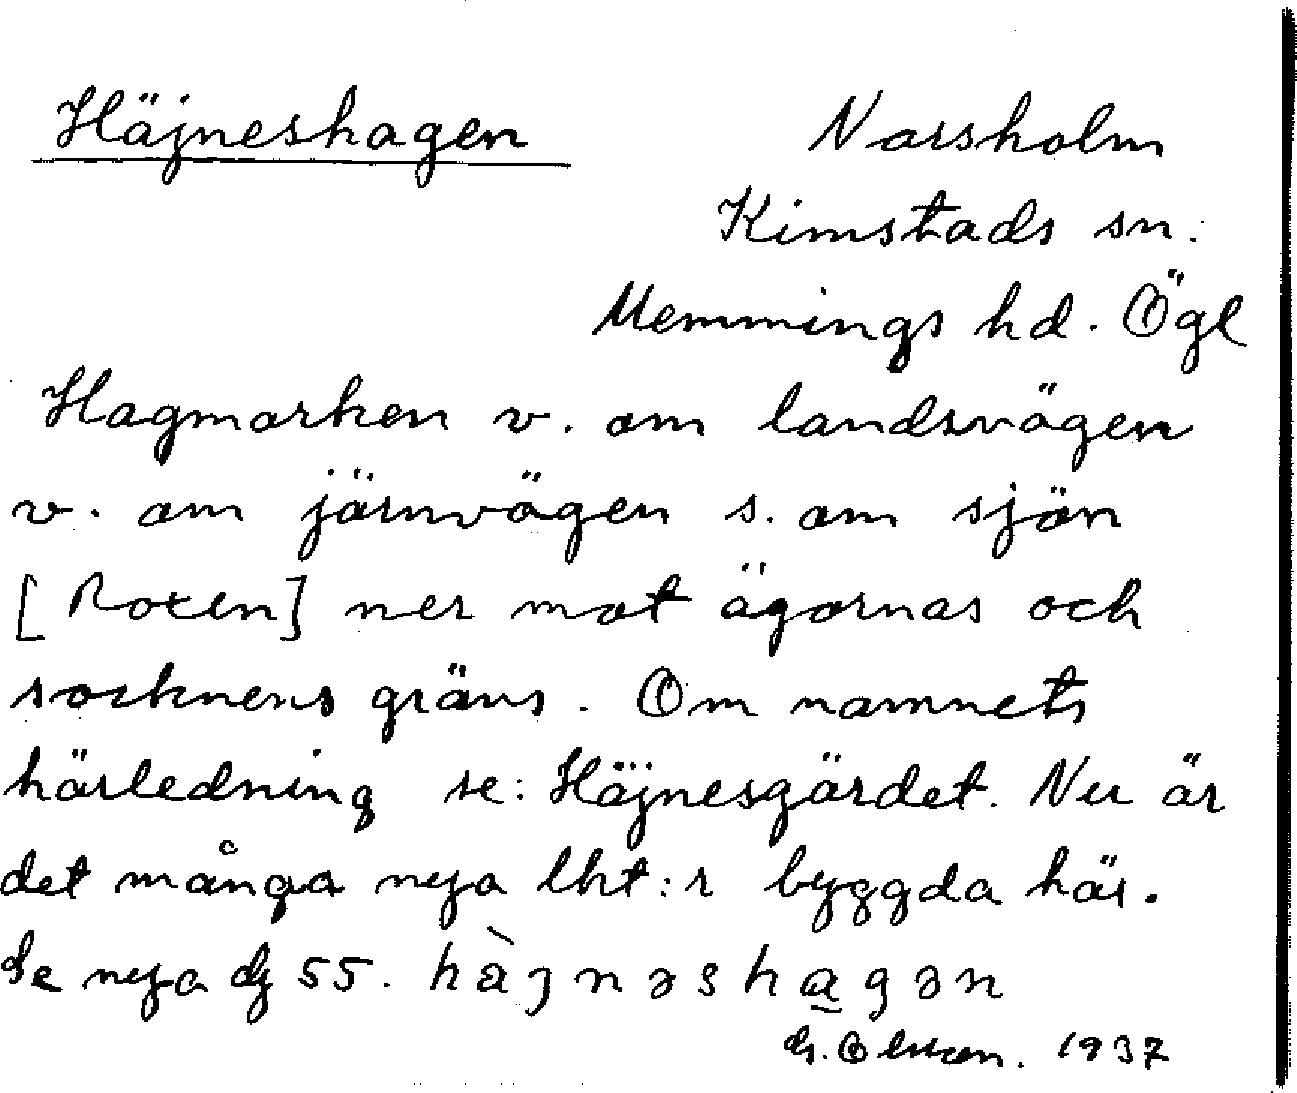 Häjneshagen
Narsholm
Kimstads sn.
Memmings hd. Ögl
Hagmarken v. om landsvägen
v. om järnvägen s. om sjön
[Roxen] ner mot ägornas och
socknens gräns. Om namnets
härledning se: Häjnesgärdet. Nu är
det många nya lht:r byggda här.
Se nya 55. hàjnəshagən
G. Olsson. 1937